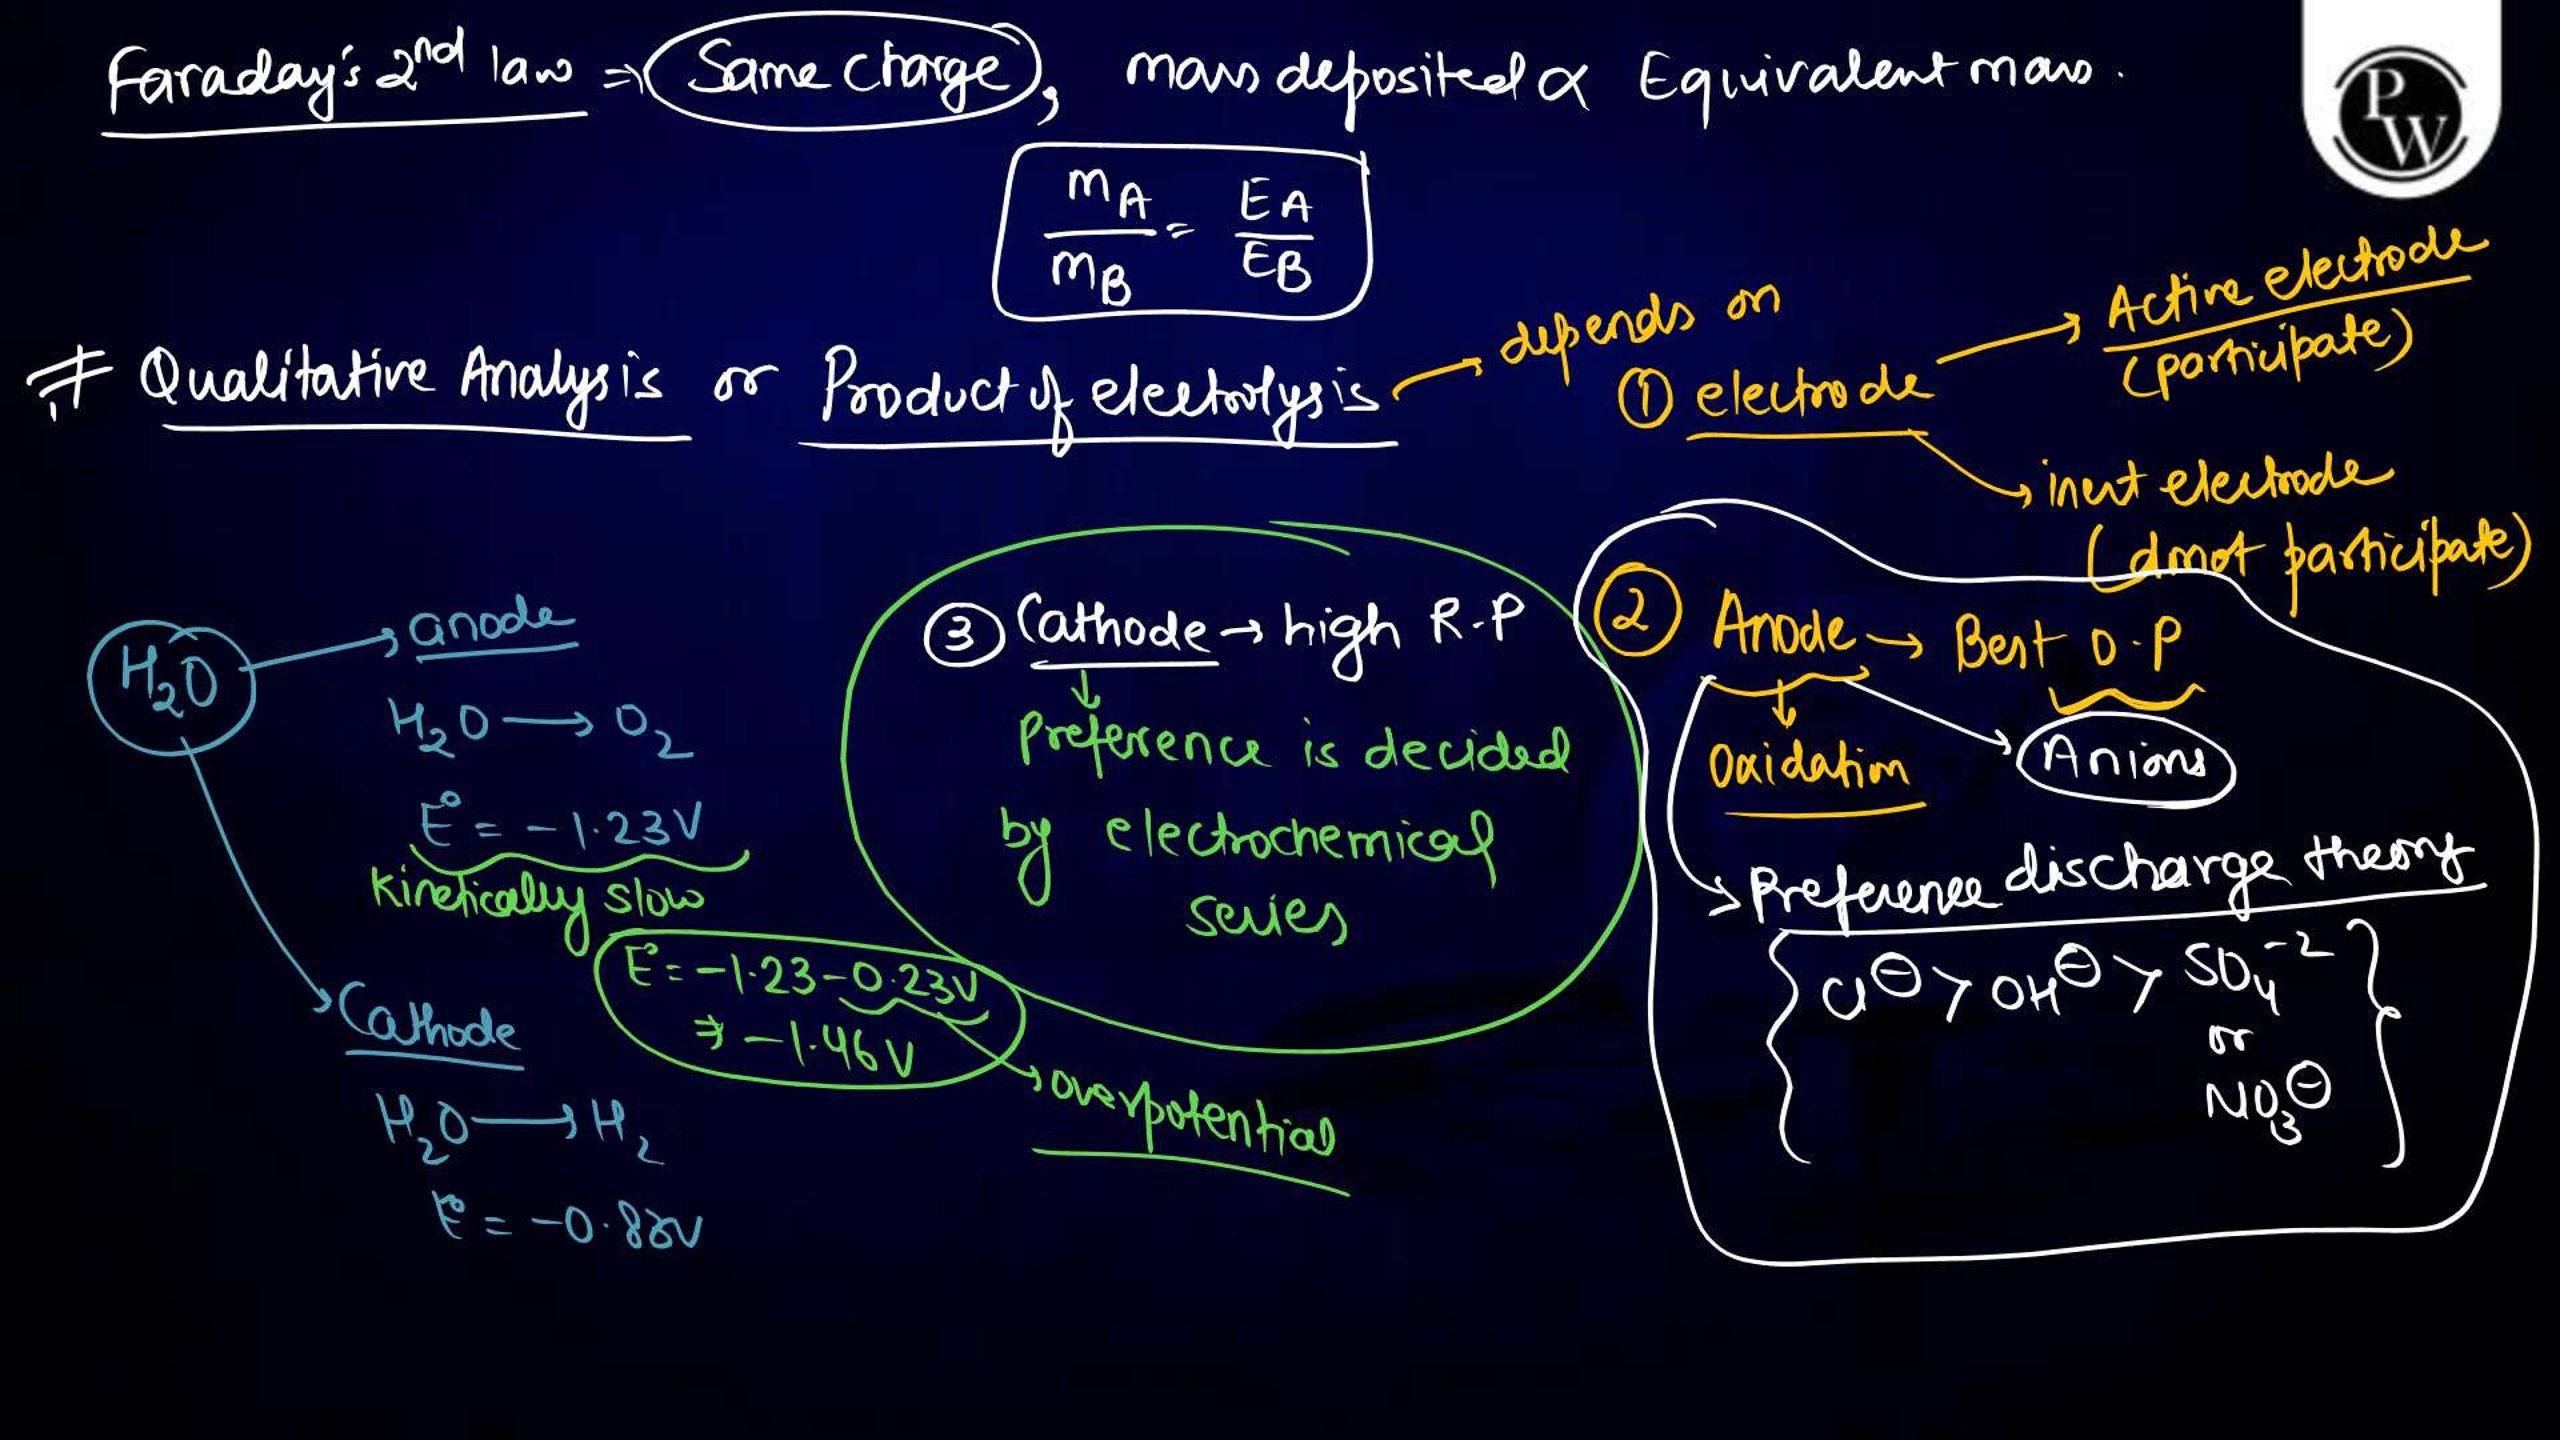 Faraday's 2nd law ⇒ Same charge, mass deposited ∝ Equivalent mass.
mA / mB = EA / EB
PW
# Qualitative Analysis or Product of electrolysis → depends on
① electrode → Active electrode
(participate)
→ inert electrode
(donot participate)
H2O → anode
H2O → O2
E° = -1.23V
Kinetically slow
E° = -1.23 - 0.23V
⇒ -1.46V
→ overpotential
→ Cathode
H2O → H2
E° = -0.83V
③ Cathode → high R.P
↓
Preference is decided
by electrochemical
series
② Anode → Best O.P
↓
Oxidation
→ Anions
→ Preference discharge theory
{ Cl⊖ > OH⊖ > SO4-2
or
NO3⊖ }